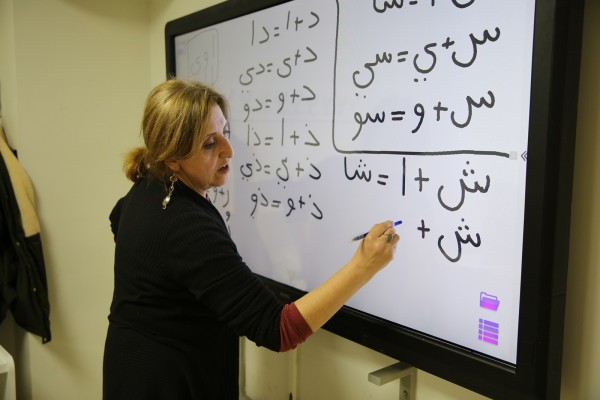 س+ي=سي
س+و=سو
ش+ا=شا
ش+
د+ا=دا
د+ي=دي
د+و=دو
ذ+ا=ذا
ذ+ي=ذي
ذ+و=ذو